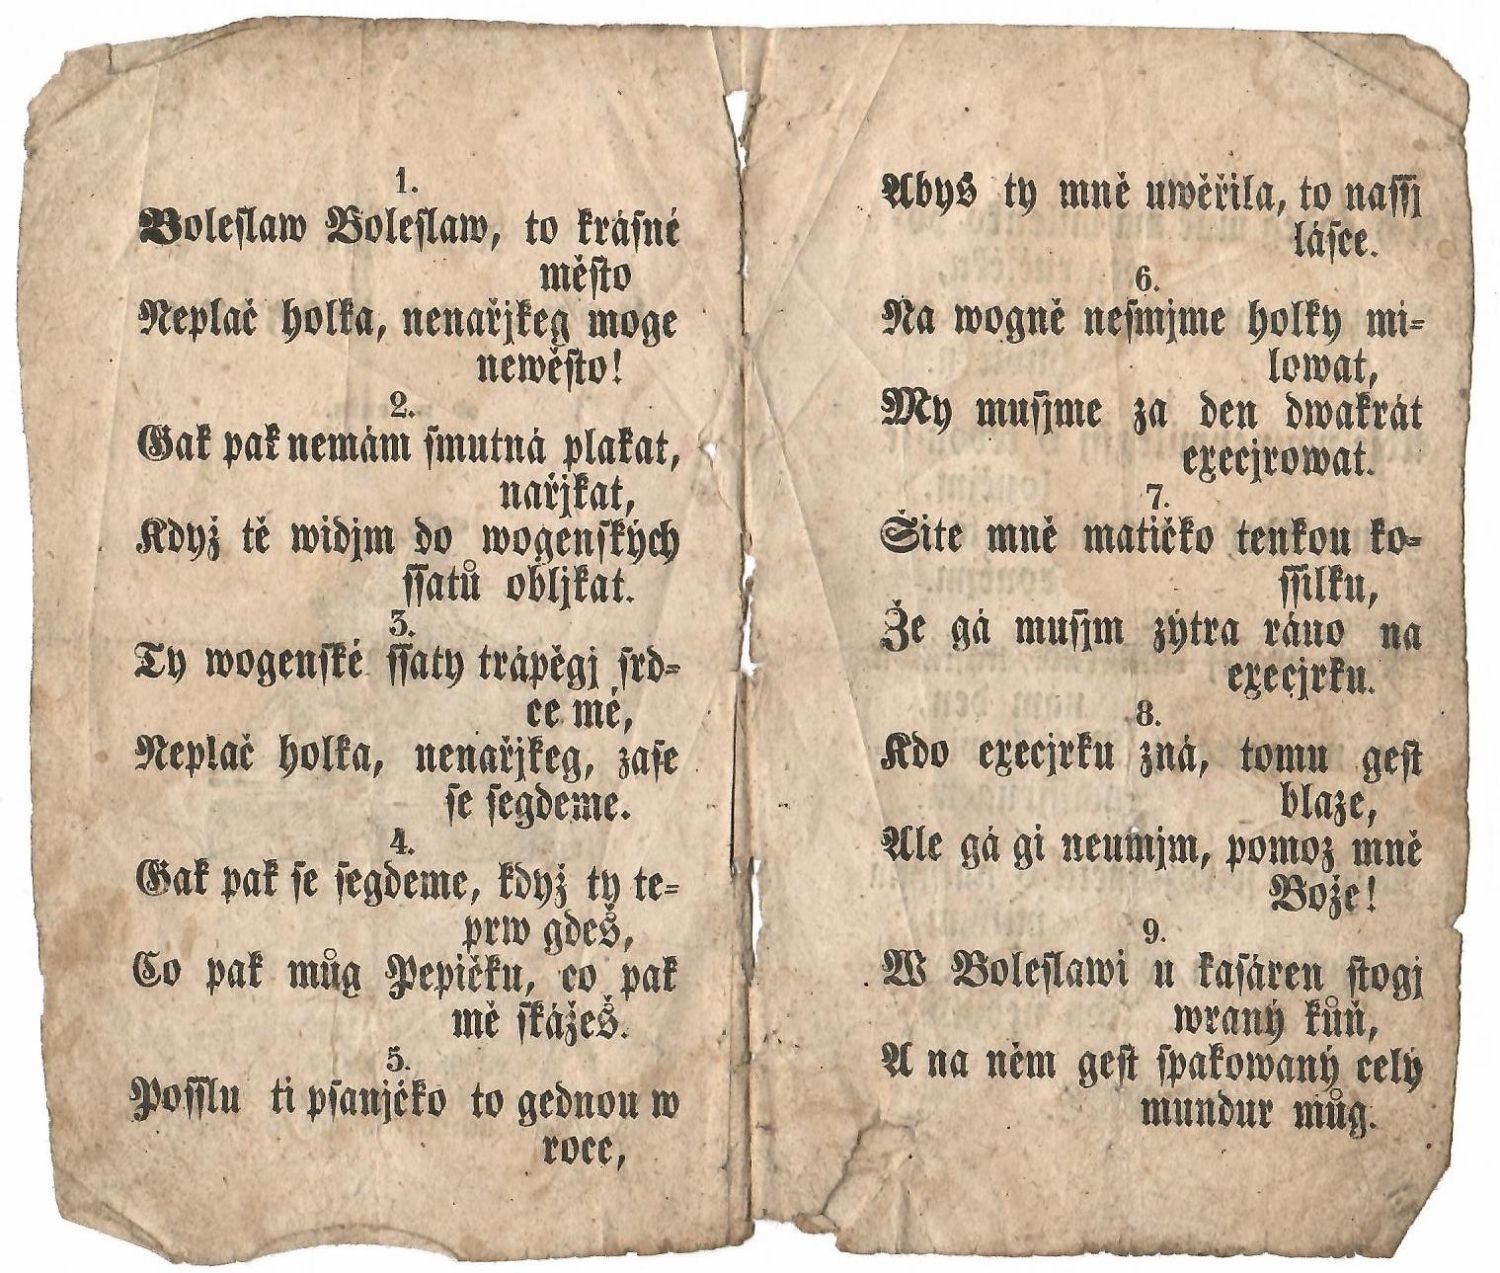 1.
Boleslaw Boleslaw, to krásné
město
Neplač holka, nenařjkeg moge
newěsto!
2.
Gak pak nemám smutná plakat,
nařjkat,
Když tě widjm do wogenských
ssatů obljkat.
3.
Ty wogenské ssaty trápěgj srd-
ce mé,
Neplač holka, nenařjkeg, zase
se segdeme.
4.
Gak pak se segdeme, když ty te-
prw gdeš,
Co pak můg Pepičku, co pak
mě skážeš.
5.
Posslu ti psanjčko to gednou w
roce,
Abys ty mně uwěřila, to nassj
lásce.
6.
Na wogně nesmjme holky mi-
lowat,
My musjme za den dwakrát
execjrowat.
7.
Šite mně matičko tenkou ko-
ssilku,
Že gá musjm zýtra ráno na
execjrku.
8.
Kdo execjrku zná, tomu gest
blaze,
Ale gá gi neumjm, pomoz mně
Bože!
9.
W Boleslawi u kasáren stogj
wraný kůň,
A na něm gest spakowaný celý
mundur můg.